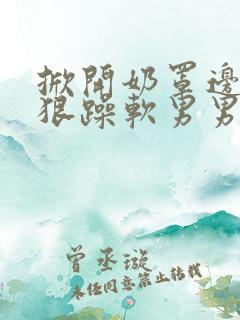 掀開奶罩邊
狠躁軟男男
曾丞璇
未任同意禁止转载